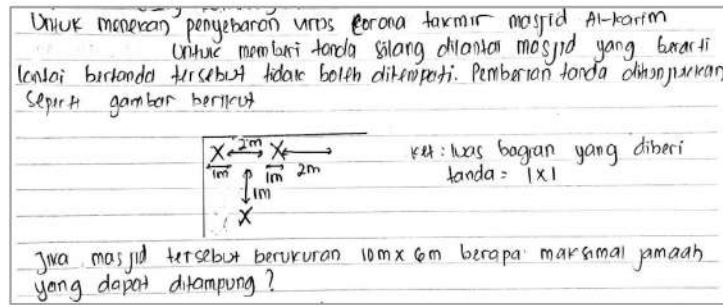 Untuk menekan penyebaran virus Corona takmir masjid Al-karim
Untuk memberi tanda silang dilantai masjid yang berarti
lantai bertanda tersebut tidak boleh ditempati. Pemberian tanda ditunjukkan
seperti gambar berikut
X 2m X
1m 1m 2m
1m
X
ket : luas bagian yang diberi
tanda = 1x1
Jika masjid tersebut berukuran 10m x 6m berapa maksimal jamaah
yang dapat ditampung ?